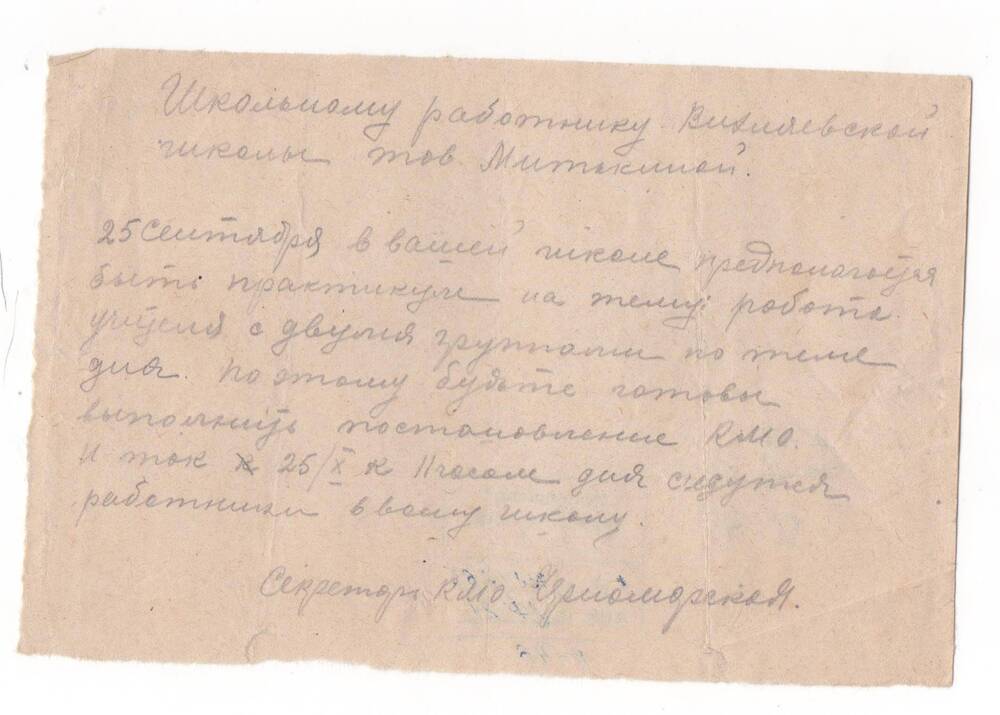 Школьному работнику Вихляевской
школы тов. Митякиной.
25 Сентября в вашей школе предпологается
быть практикум на тему: робота
учителя с двумя группами по теме
дня. Поэтому будьте готовы
выполнить постановление КМО.
И так к 25/X к 11 часам дня съедутся
работники в вашу школу.
Секретарь КМО Черноморская.